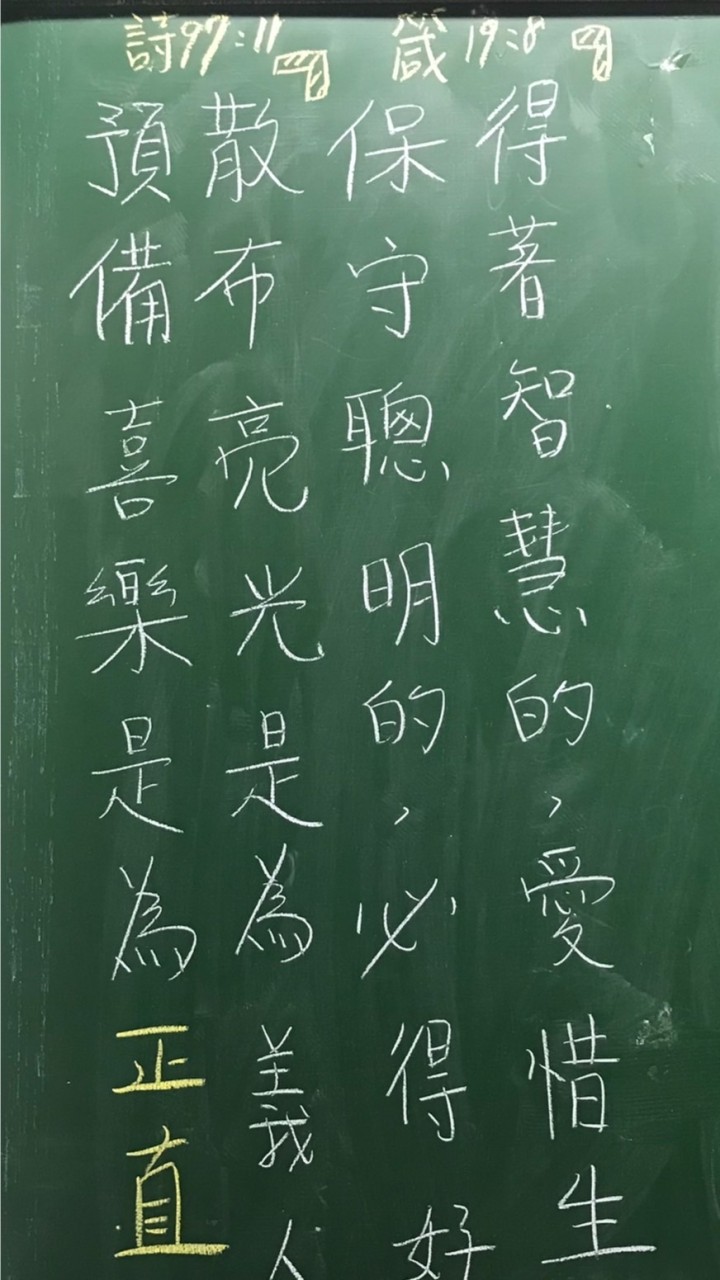 箴19:8﹁
得著智慧的，愛惜生
保守聰明的，必得好
詩97:11﹁
散布亮光是為義人
預備喜樂是為正直